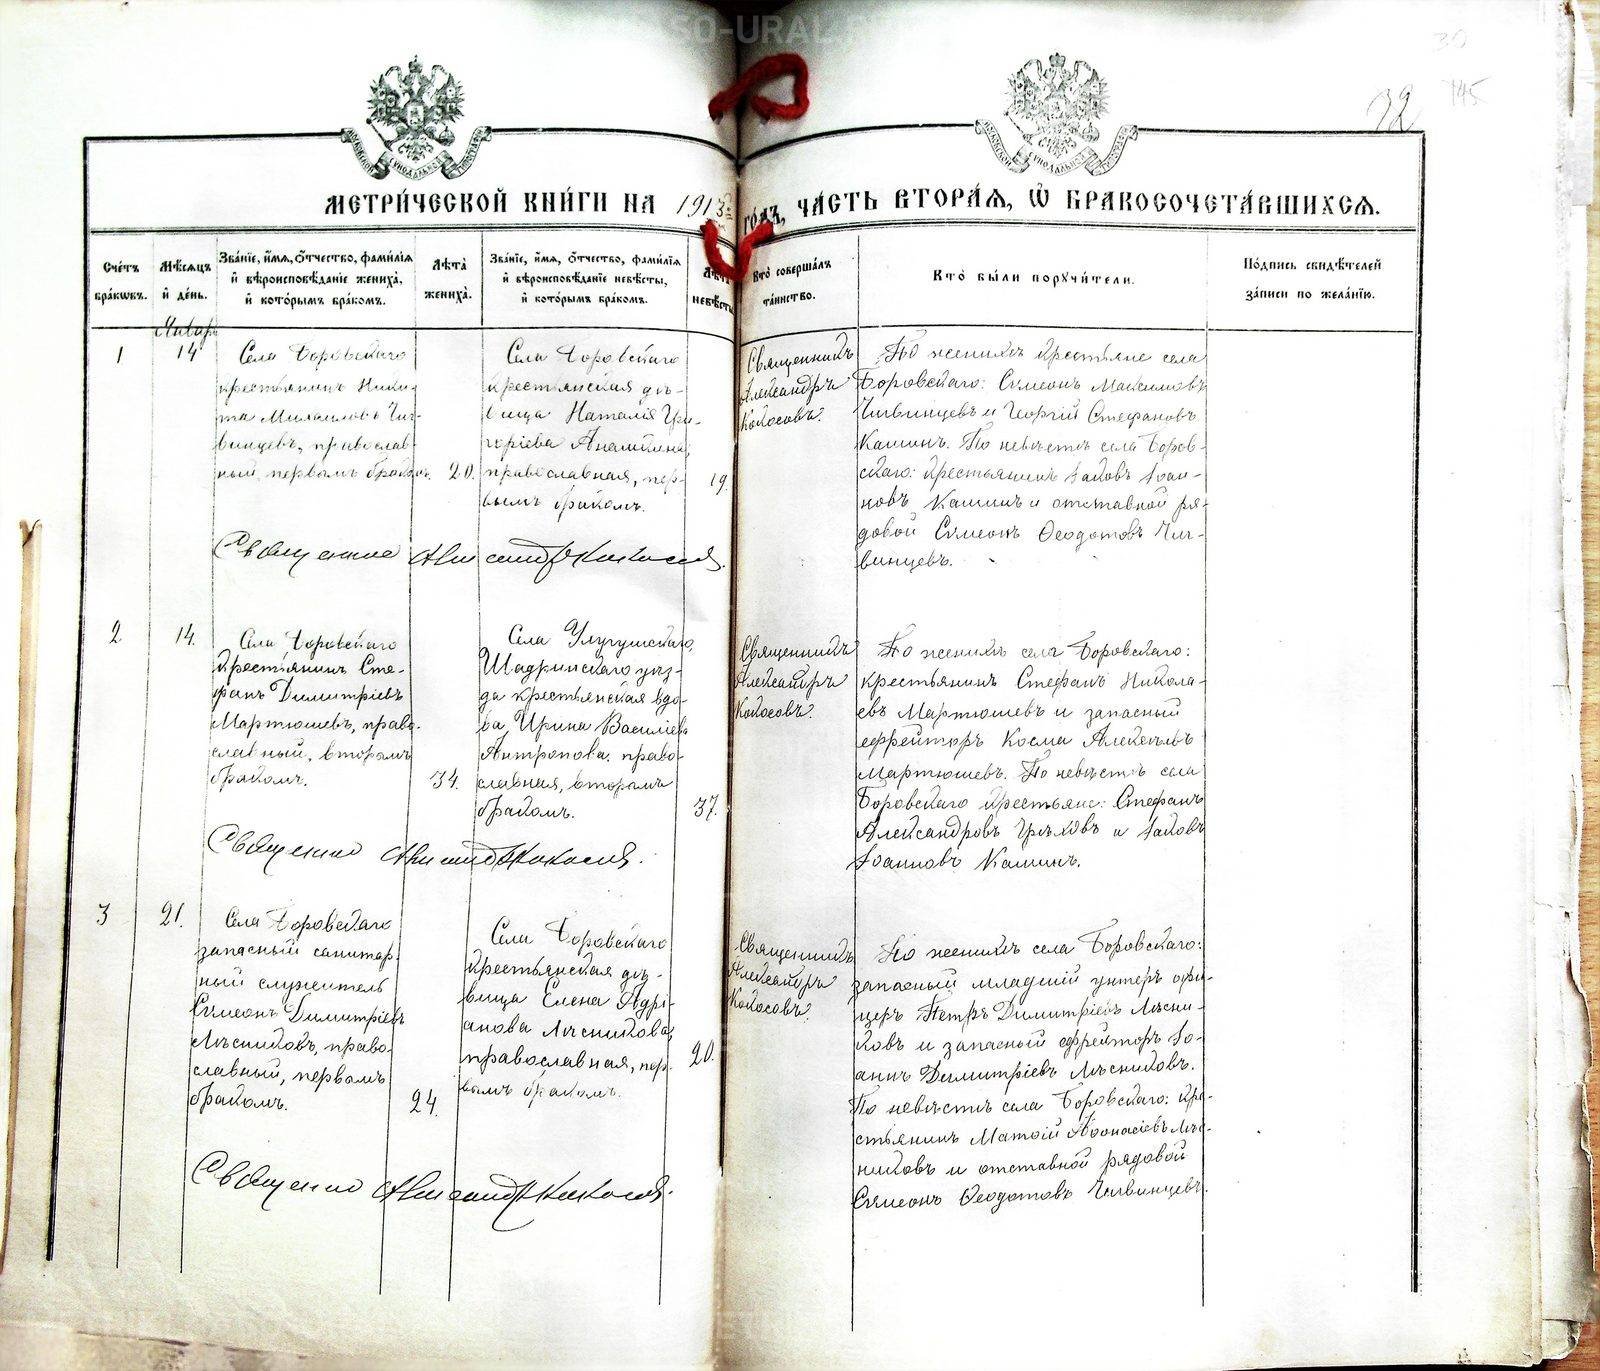 SO-URAL
30
32
145
МЕТРИ́ЧЕСКОЙ КНИ́ГИ НА 1913 ГО́ДЪ, ЧА́СТЬ ВТОРА́Я, Ѽ БРАКОСОЧЕТА́ВШИХСЯ.
Сче́тъ бра́кѡвъ.
Мѣ́сяцъ и҆ де́нь.
Зва́нїе, и҆́мя, ѻ҆́тчество, фами́лїя и҆ вѣроисповѣ́данїе жениха̀, и҆ кото́рымъ бра́комъ.
Лѣ́та жениха̀.
Зва́нїе, и҆́мя, ѻ҆́тчество, фами́лїя и҆ вѣроисповѣ́данїе невѣ́сты, и҆ кото́рымъ бра́комъ.
Лѣ́та невѣ́сты
Кто̀ соверша́лъ та́инство.
Кто̀ бы́ли порꙋчи́тели.
По́дпись свидѣ́телей за́писи по жела́нїю.
Январь
1
14
Села Боровскаго
крестьянинъ Ники-
та Михаиловъ Чи-
винцевъ, православ-
ный, первымъ бракомъ.
20.
Села Боровскаго
крестьянская дѣ-
вица Наталія Гри-
горіева
православная, пер-
вымъ бракомъ.
19.
Священникъ
Александръ
Колосовъ.
По женихѣ крестьяне села
Боровскаго: Сѵмеонъ Максимовъ
Чивинцевъ и Георгій Стефановъ
Кашинъ. По невѣстѣ села Боров-
скаго: крестьянинъ Іаковъ Іоан-
новъ Кашинъ и отставной ря-
довой Сѵмеонъ Ѳеодотовъ Чи-
винцевъ.
Священникъ Александръ Колосовъ.
2
14.
Села Боровскаго
крестьянинъ Сте-
фанъ Димитріевъ
Мартюшевъ, право-
славный, вторымъ
бракомъ.
34.
Села
Шадринскаго уѣз-
да крестьянская вдо-
ва Ирина Василіева
Антропова, право-
славная, вторымъ
бракомъ.
37.
Священникъ
Александръ
Колосовъ.
По женихѣ села Боровскаго:
крестьянинъ Стефанъ Никола-
евъ Мартюшевъ и запасный
ефрейторъ Косма Алексѣевъ
Мартюшевъ. По невѣстѣ села
Боровскаго крестьяне: Стефанъ
Александровъ Грѣховъ и Іаковъ
Іоанновъ Кашинъ.
Священникъ Александръ Колосовъ.
3
21.
Села Боровскаго
запасный санитар-
ный служитель
Сѵмеонъ Димитріевъ
Лѣсниковъ, право-
славный, первымъ
бракомъ.
24.
Села Боровскаго
крестьянская дѣ-
вица Елена Адрі-
анова Лѣсникова,
православная, пер-
вымъ бракомъ.
20.
Священникъ
Александръ
Колосовъ.
По женихѣ села Боровскаго:
запасный младшій унтеръ офи-
церъ Петръ Димитріевъ Лѣсни-
ковъ и запасный ефрейторъ Іо-
аннъ Димитріевъ Лѣсниковъ.
По невѣстѣ села Боровскаго: кре-
стьянинъ Матѳій Аѳонасіевъ Лѣс-
никовъ и отставной рядовой
Сѵмеонъ Ѳеодотовъ Чивинцевъ.
Священникъ Александръ Колосовъ.